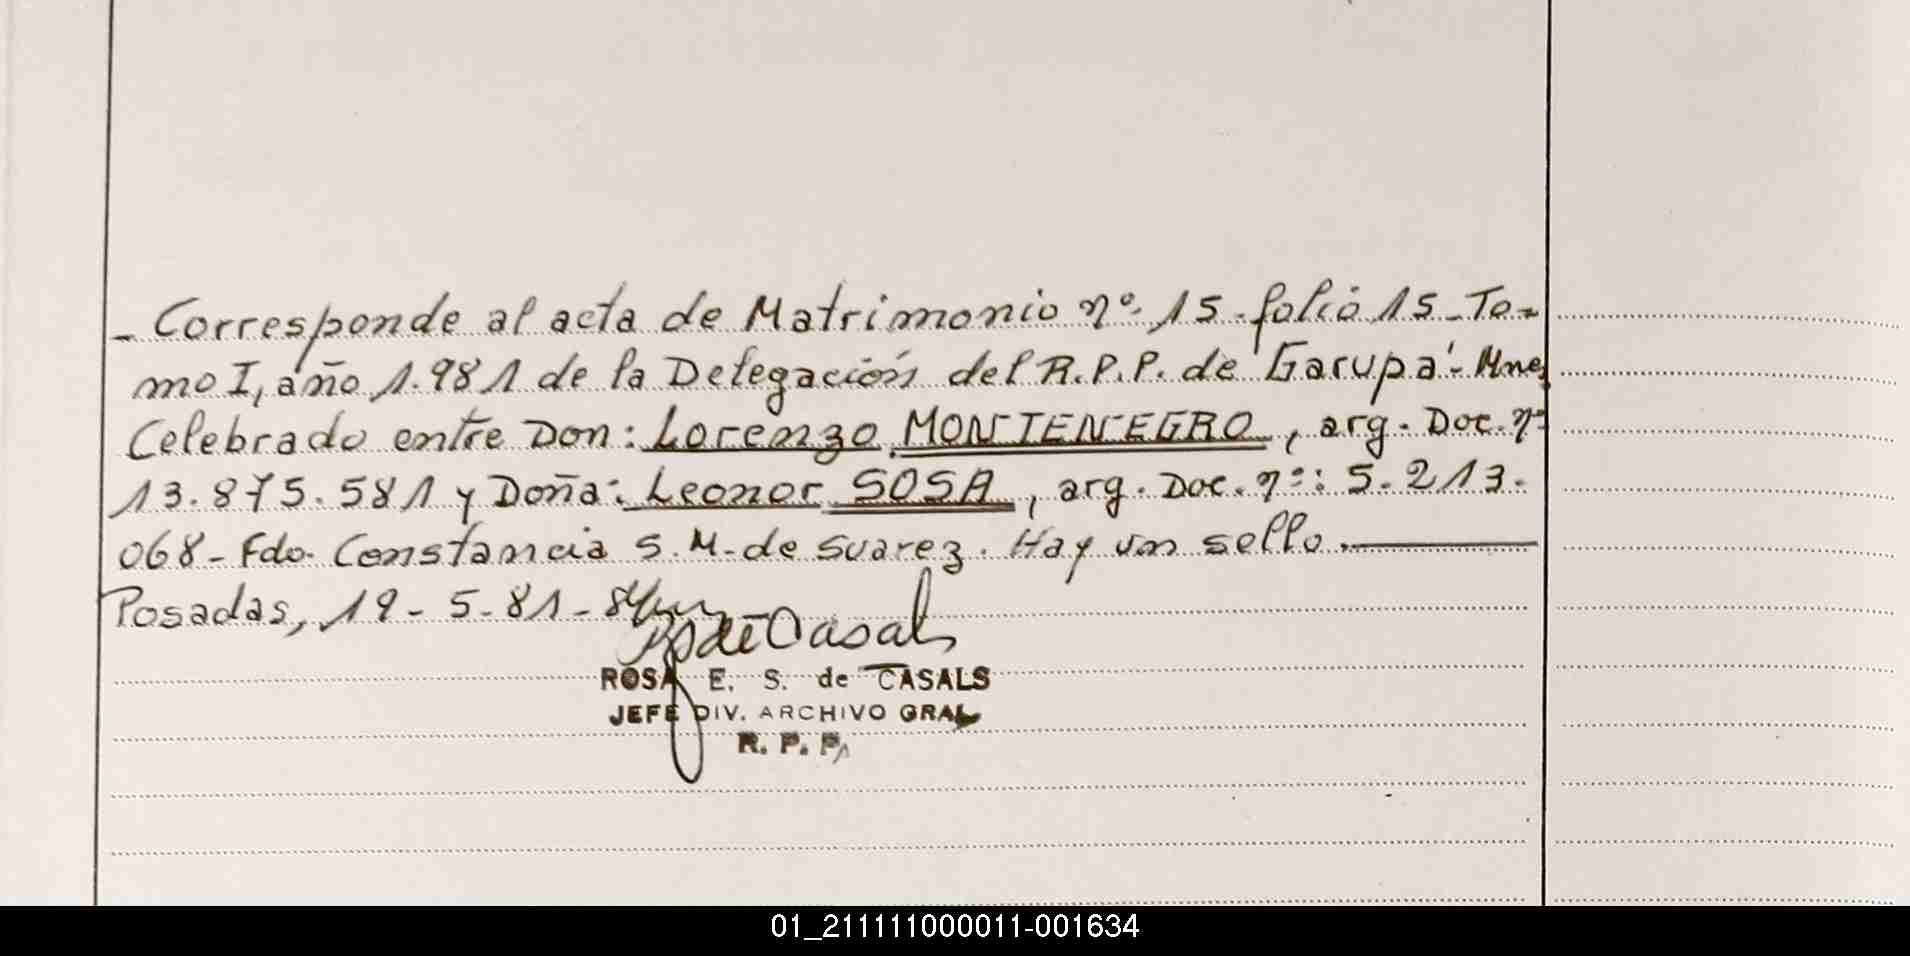 - Corresponde al acta de Matrimonio nº 15 - folio 15 - To-
mo I, año 1.981 de la Delegación del R.P.P. de Garupá - Mnes
Celebrado entre Don: Lorenzo MONTENEGRO, arg. Doc. nº
13.875.581 y Doña: Leonor SOSA, arg. Doc. nº: 5.213.
068 - Fdo. Constancia S. M. de Suarez. Hay un sello.
Posadas, 19 - 5 - 81 -
de Casals
ROSA E. S. de CASALS
JEFE DIV. ARCHIVO GRAL
R. P. P.
01_211111000011-001634